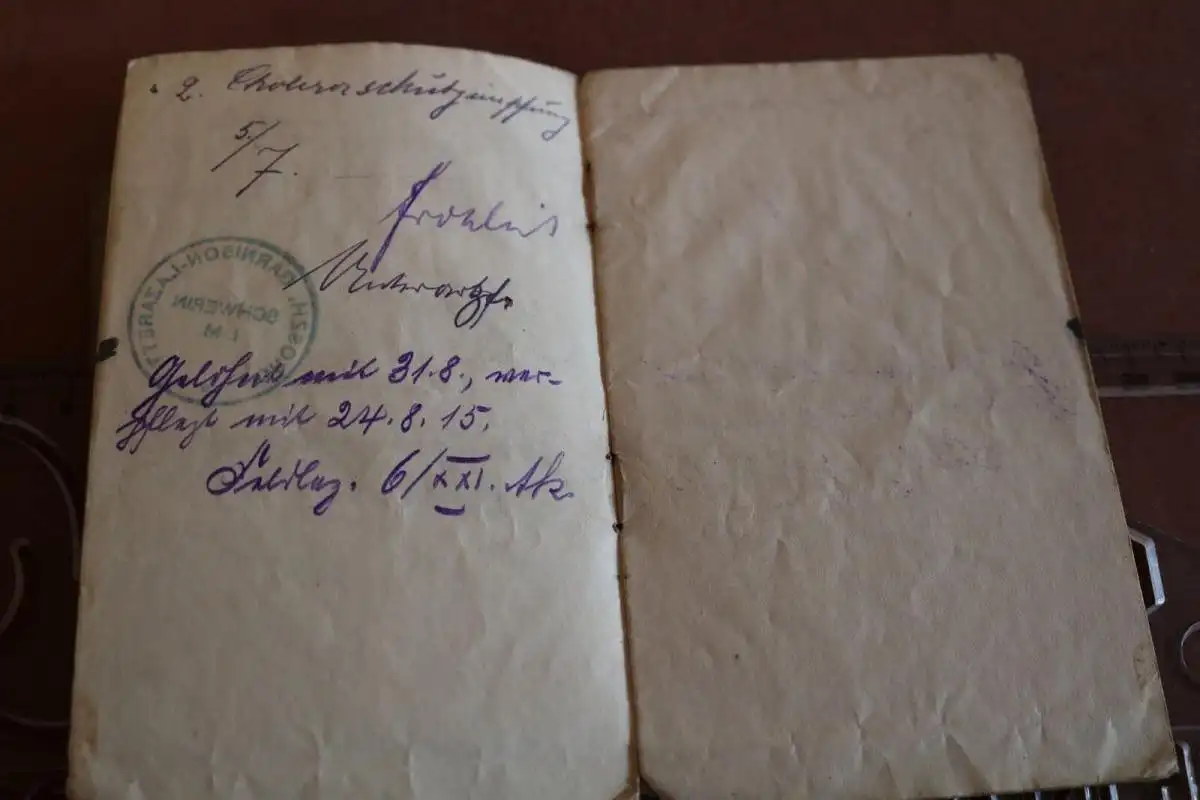 2. Choleraschutzimpfung
5./7.
Unterarzt.
GROSZH. GARNISON-LAZARETH
SCHWERIN
I. M.
Gelöhnt mit 31.8., ver-
pflegt mit 24.8.15.
Feldlaz. 6/XXI. Ak.